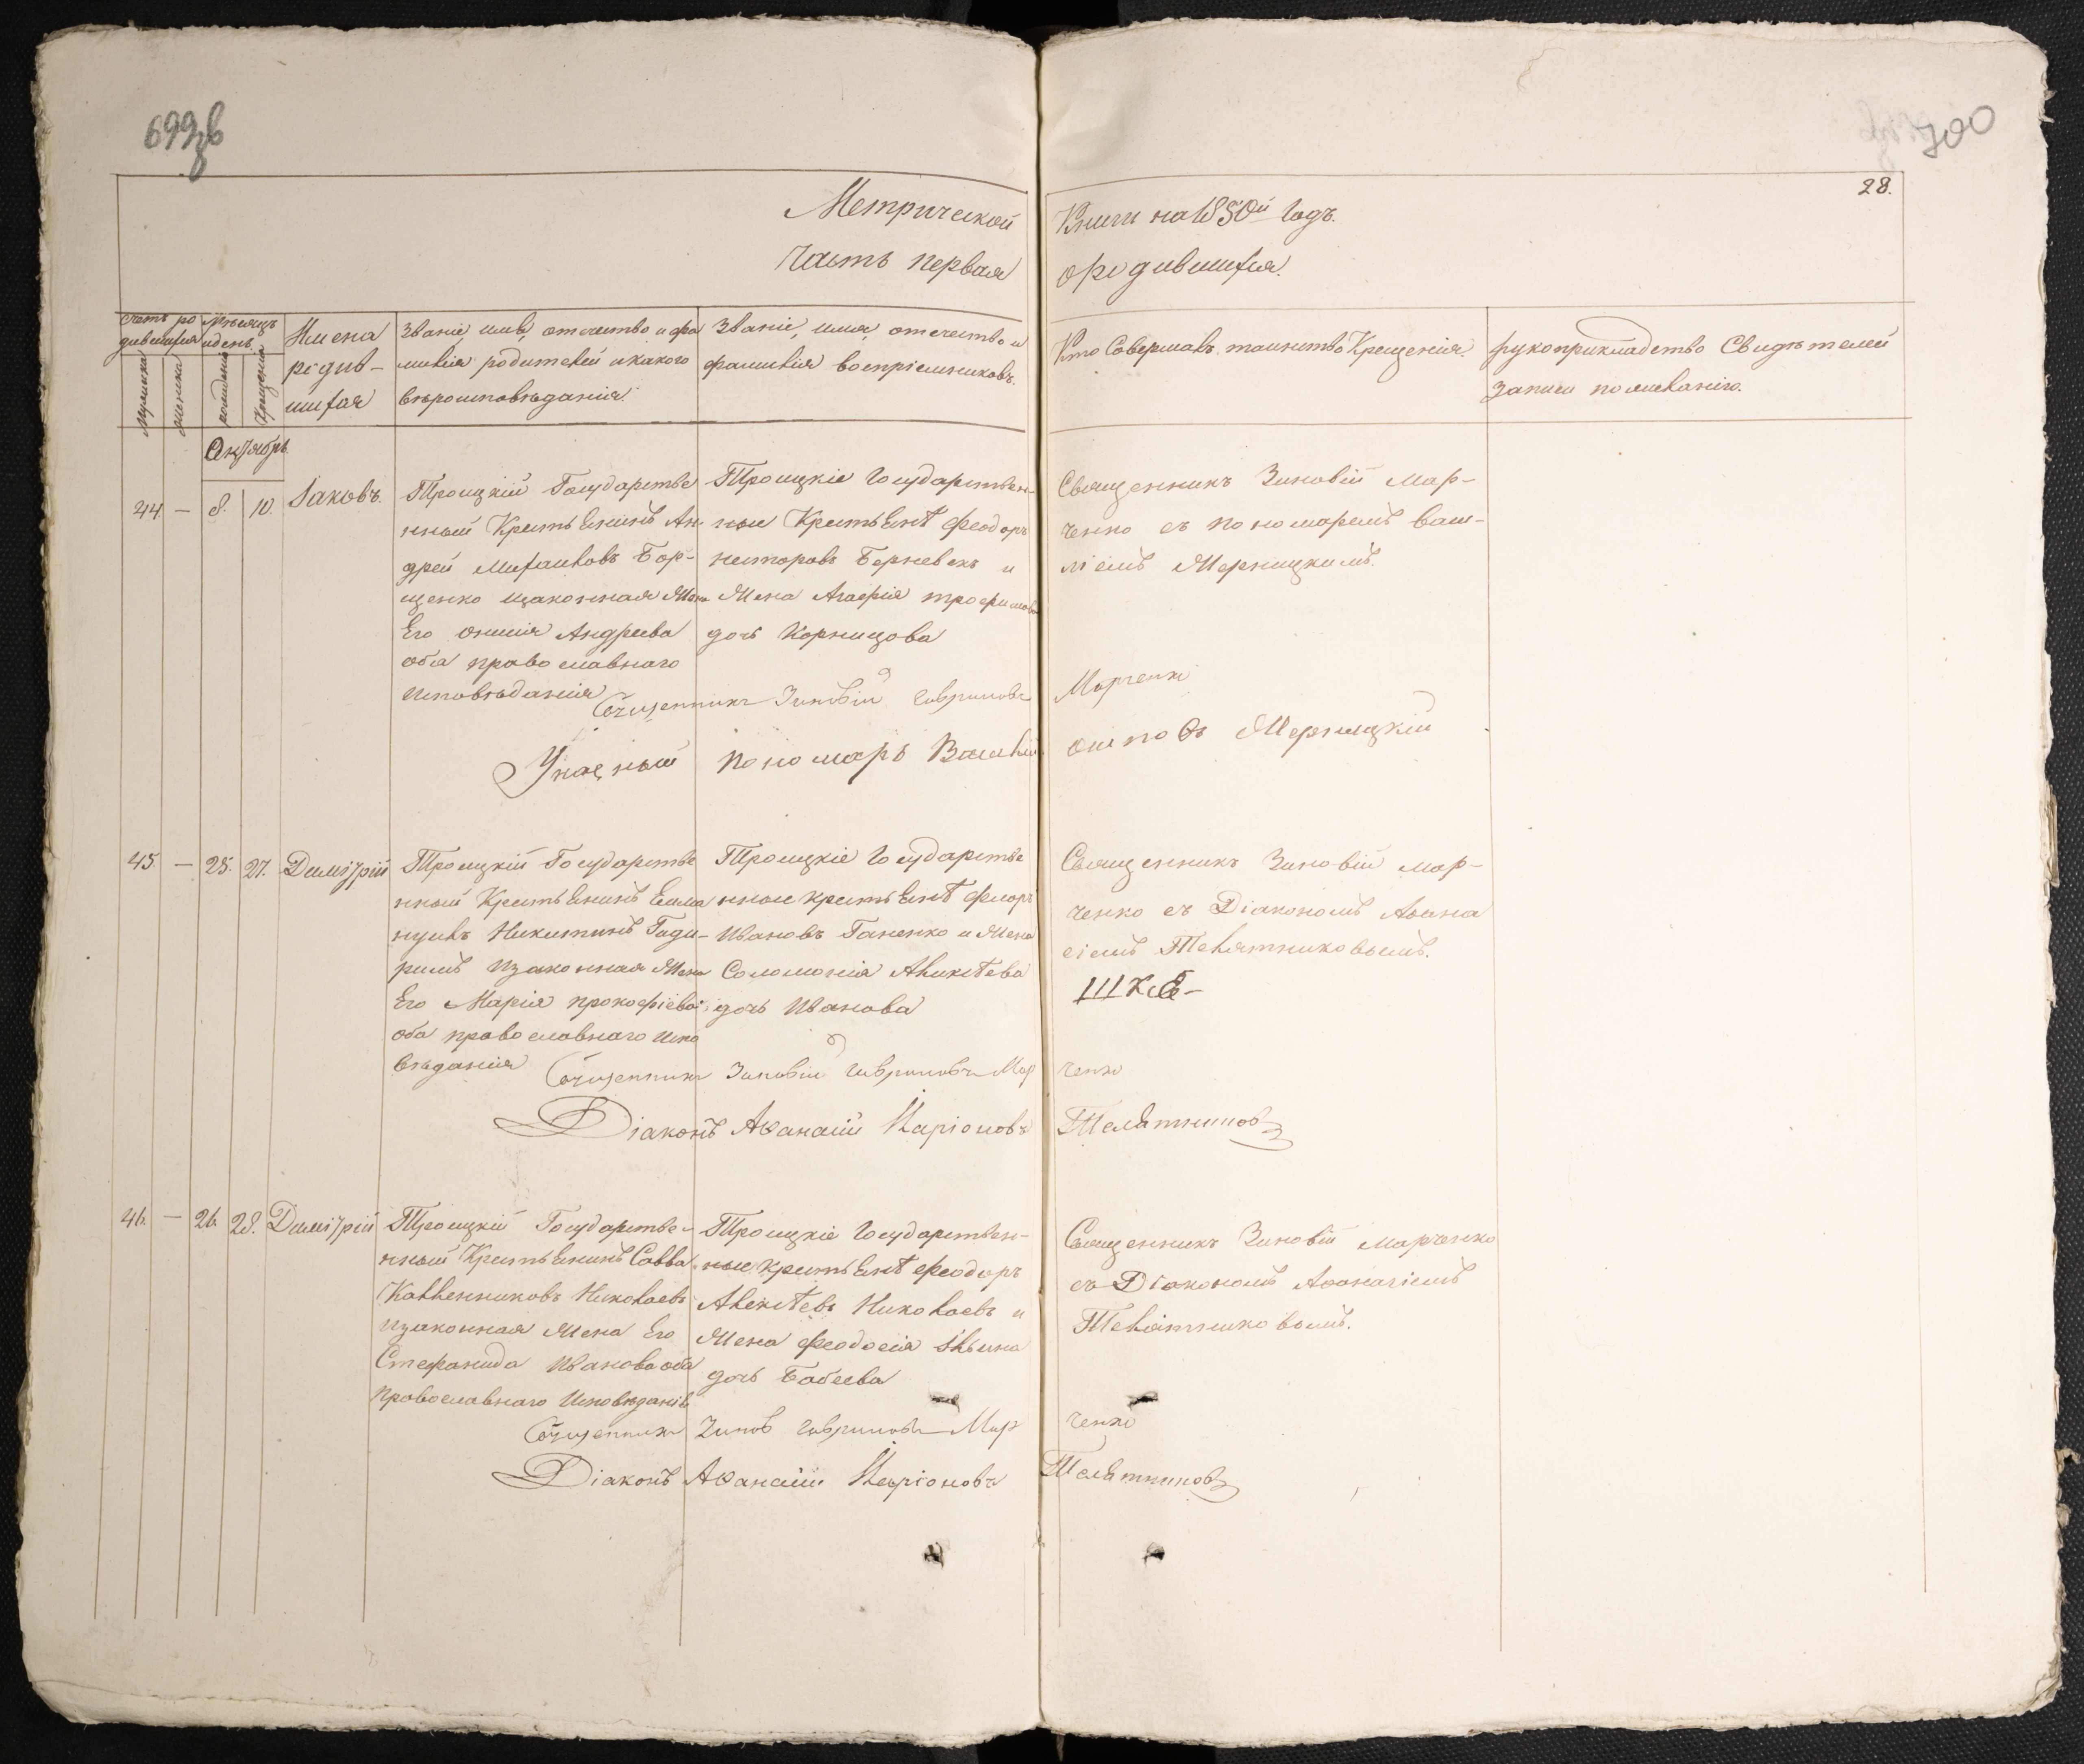 699зв
700
28.
Метрической
Книги на 1850й Годъ.
Часть первая
о родившихся.
Счетъ ро
дившихся
Мѣсяцъ
и день
Мужеска
женска
рожденія
Крещенія
Имена
родив-
шихся
Званіе, имя, отчество и фа
милія родителей и какого
вѣроисповѣданія.
Званіе, имя, отечество и
фамилія воспріемниковъ.
Кто Совершалъ таинство Крещенія.
рукоприкладство Свидѣтелей
записи по желанію.
Октябрь
44. — 8. 10. Іаковъ.
Троицкій Государстве
нный Крестьянинъ Ан-
дрей Михаиловъ Бор-
щенко изаконная Жена
Его Андреева
оба православнаго
исповѣданія
Троицкіе Государствен-
ные Крестьянѣ Феодоръ
несторовъ и
Жена Агафія трофимова
дочь
Священникъ Зиновій Мар-
ченко съ пономаремъ Васи-
ліемъ Жерницкимъ.
Священникъ Зиновій Гавриловъ Марченко
Указный пономарь Василій Осиповъ Жерницкій
45 — 25. 27. Димитрій
Троицкій Государстве
нный Крестьянинъ Емиліа
нуилъ Никитинъ
изаконная Жена
Его Марія прокофіева
оба православнаго испо
вѣданія
Троицкіе Государстве
нные крестьянѣ
Ивановъ Ганенко и Жена
Соломонія Алексѣева
дочь Иванова
Священникъ Зиновій Мар-
ченко съ Діакономъ Афана
сіемъ Телятниковымъ.
Священникъ Зиновій Гавриловъ Марченко
Діаконъ Афанасій Иларіоновъ Телятниковъ
46. — 26. 28. Димитрій
Троицкій Государстве-
нный Крестьянинъ Савва
Николаевъ
изаконная Жена Его
Стефанида Иванова оба
Православнаго Исповѣданія
Троицкіе Государствен-
ные крестьянѣ Феодоръ
Алексѣевъ Николаевъ и
Жена Феодосія
дочь Бабеева
Священникъ Зиновій Марченко
съ Діакономъ Афанасіемъ
Телятниковымъ.
Священникъ Зинов Гавриловъ Марченко
Діаконъ Афанасій Иларіоновъ Телятниковъ